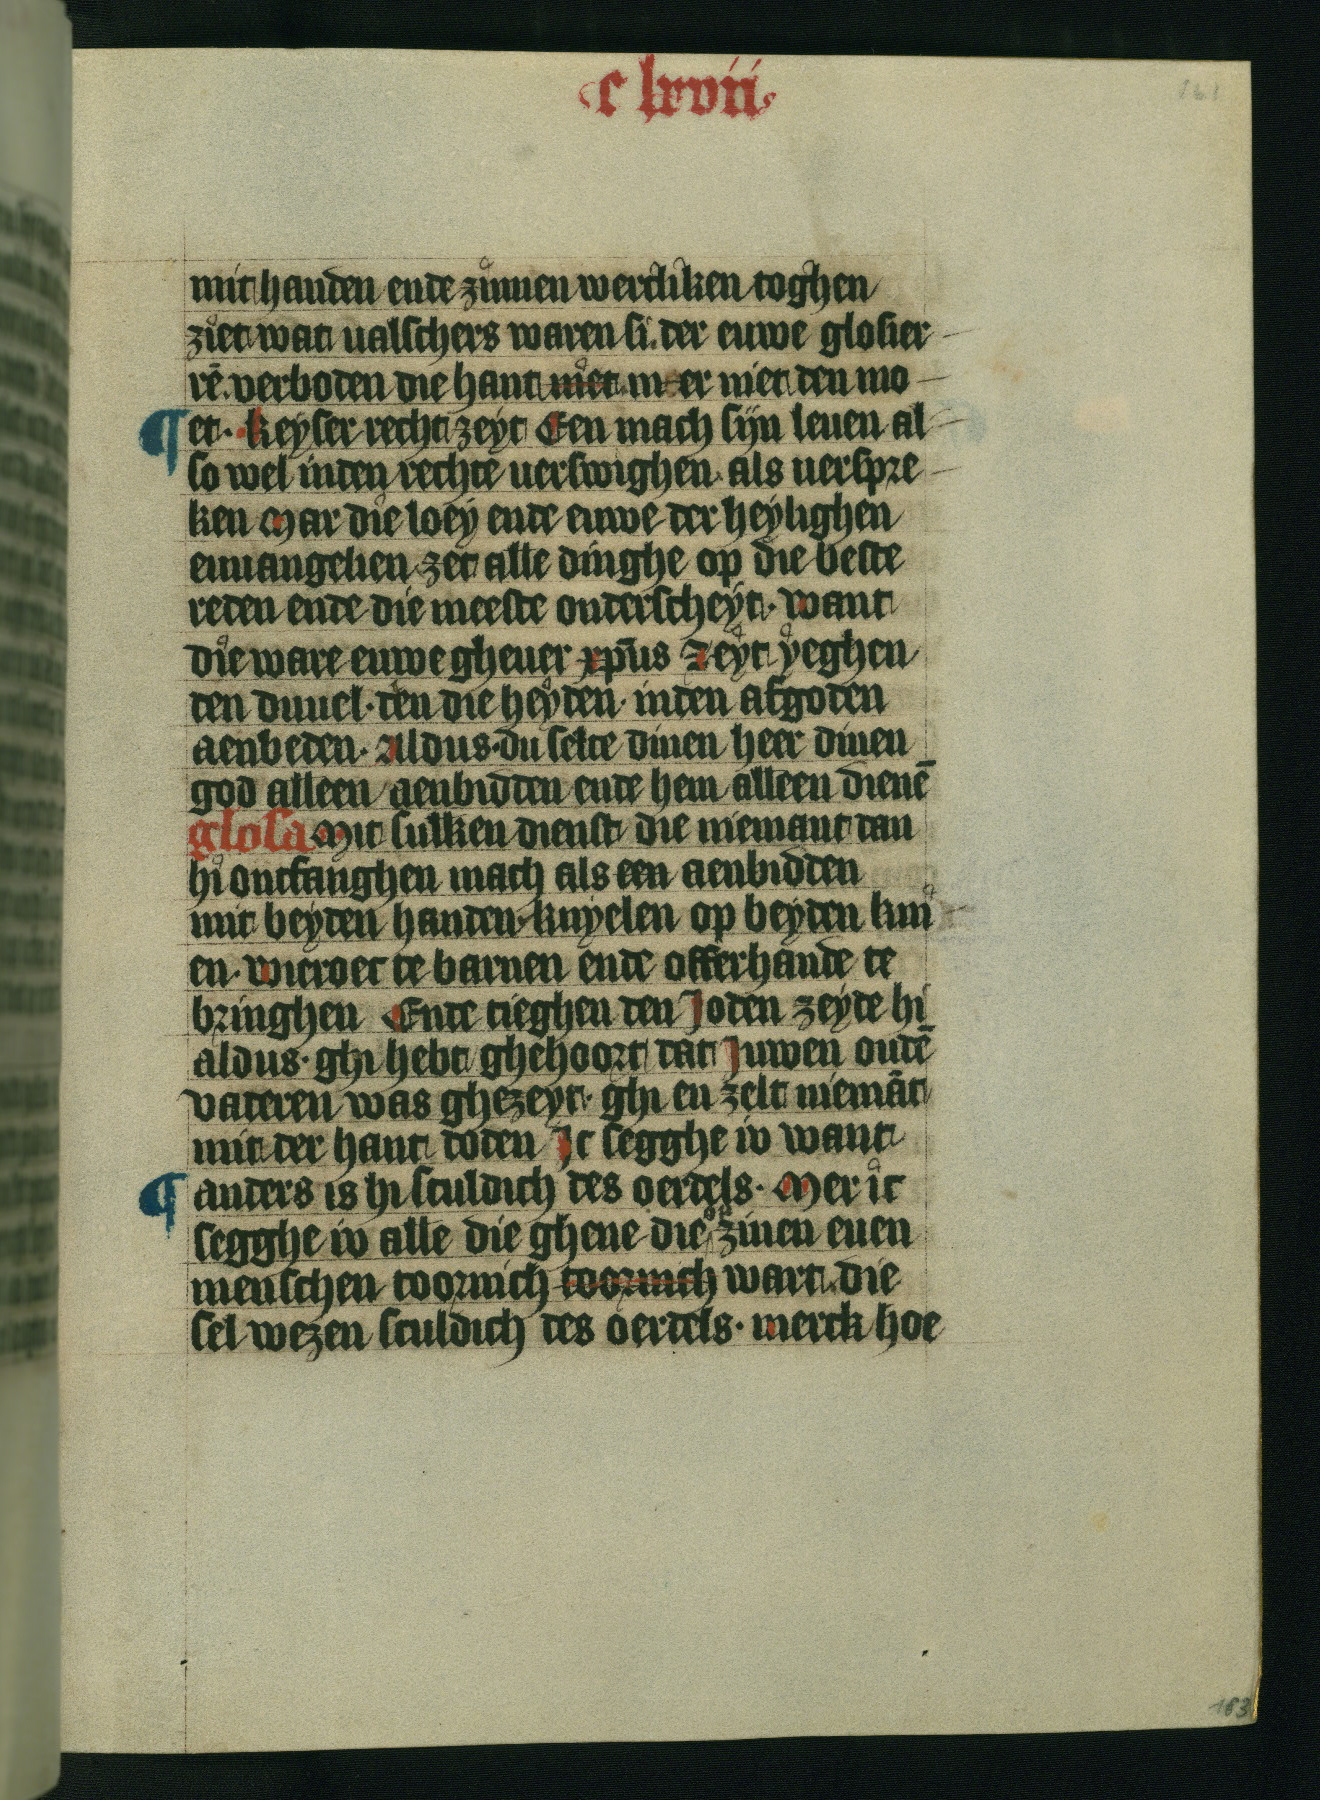 c lxvii
161
mit handen ende zinnen werckliken toghen
ziet wat ualschers waren si. der euwe glosier
rē. verboden die hant niet m er niet den mo
et. keyser recht zeyt Een mach sijn leuen al
so wel inden rechte uerswighen als uerspre
ken Mar die loey ende euwe der heylighen
ewangelien zet alle dinghe op die beste
reden ende die meeste onderscheyt. want
die ware euwe gheuer xp̄us Zeyt yeghen
den duuel. den die heyden. inden afgoden
aenbeden. Aldus. du selte dinen heer dinen
god alleen aenbidden ende hem alleen dienē
glosa Mit sulken dienst die niemant dan
hi ontfanghen mach als een aenbidden
mit beyden handen. knyelen op beyden kni
en. wieroec te barnen ende offerhande te
bringhen Ende tieghen den Joden zeyde hi
aldus. ghi hebt ghehoort dat Juwen oudē
vateren was ghezeyt. ghi en zelt niemāt
mit der hant doden Jc segghe iv want
anders is hi sculdich des oerdels. Mer ic
segghe iv alle die ghene die zinen euen
menschen toornich toornich wart. die
sel wezen sculdich des oerdels. merck hoe
183